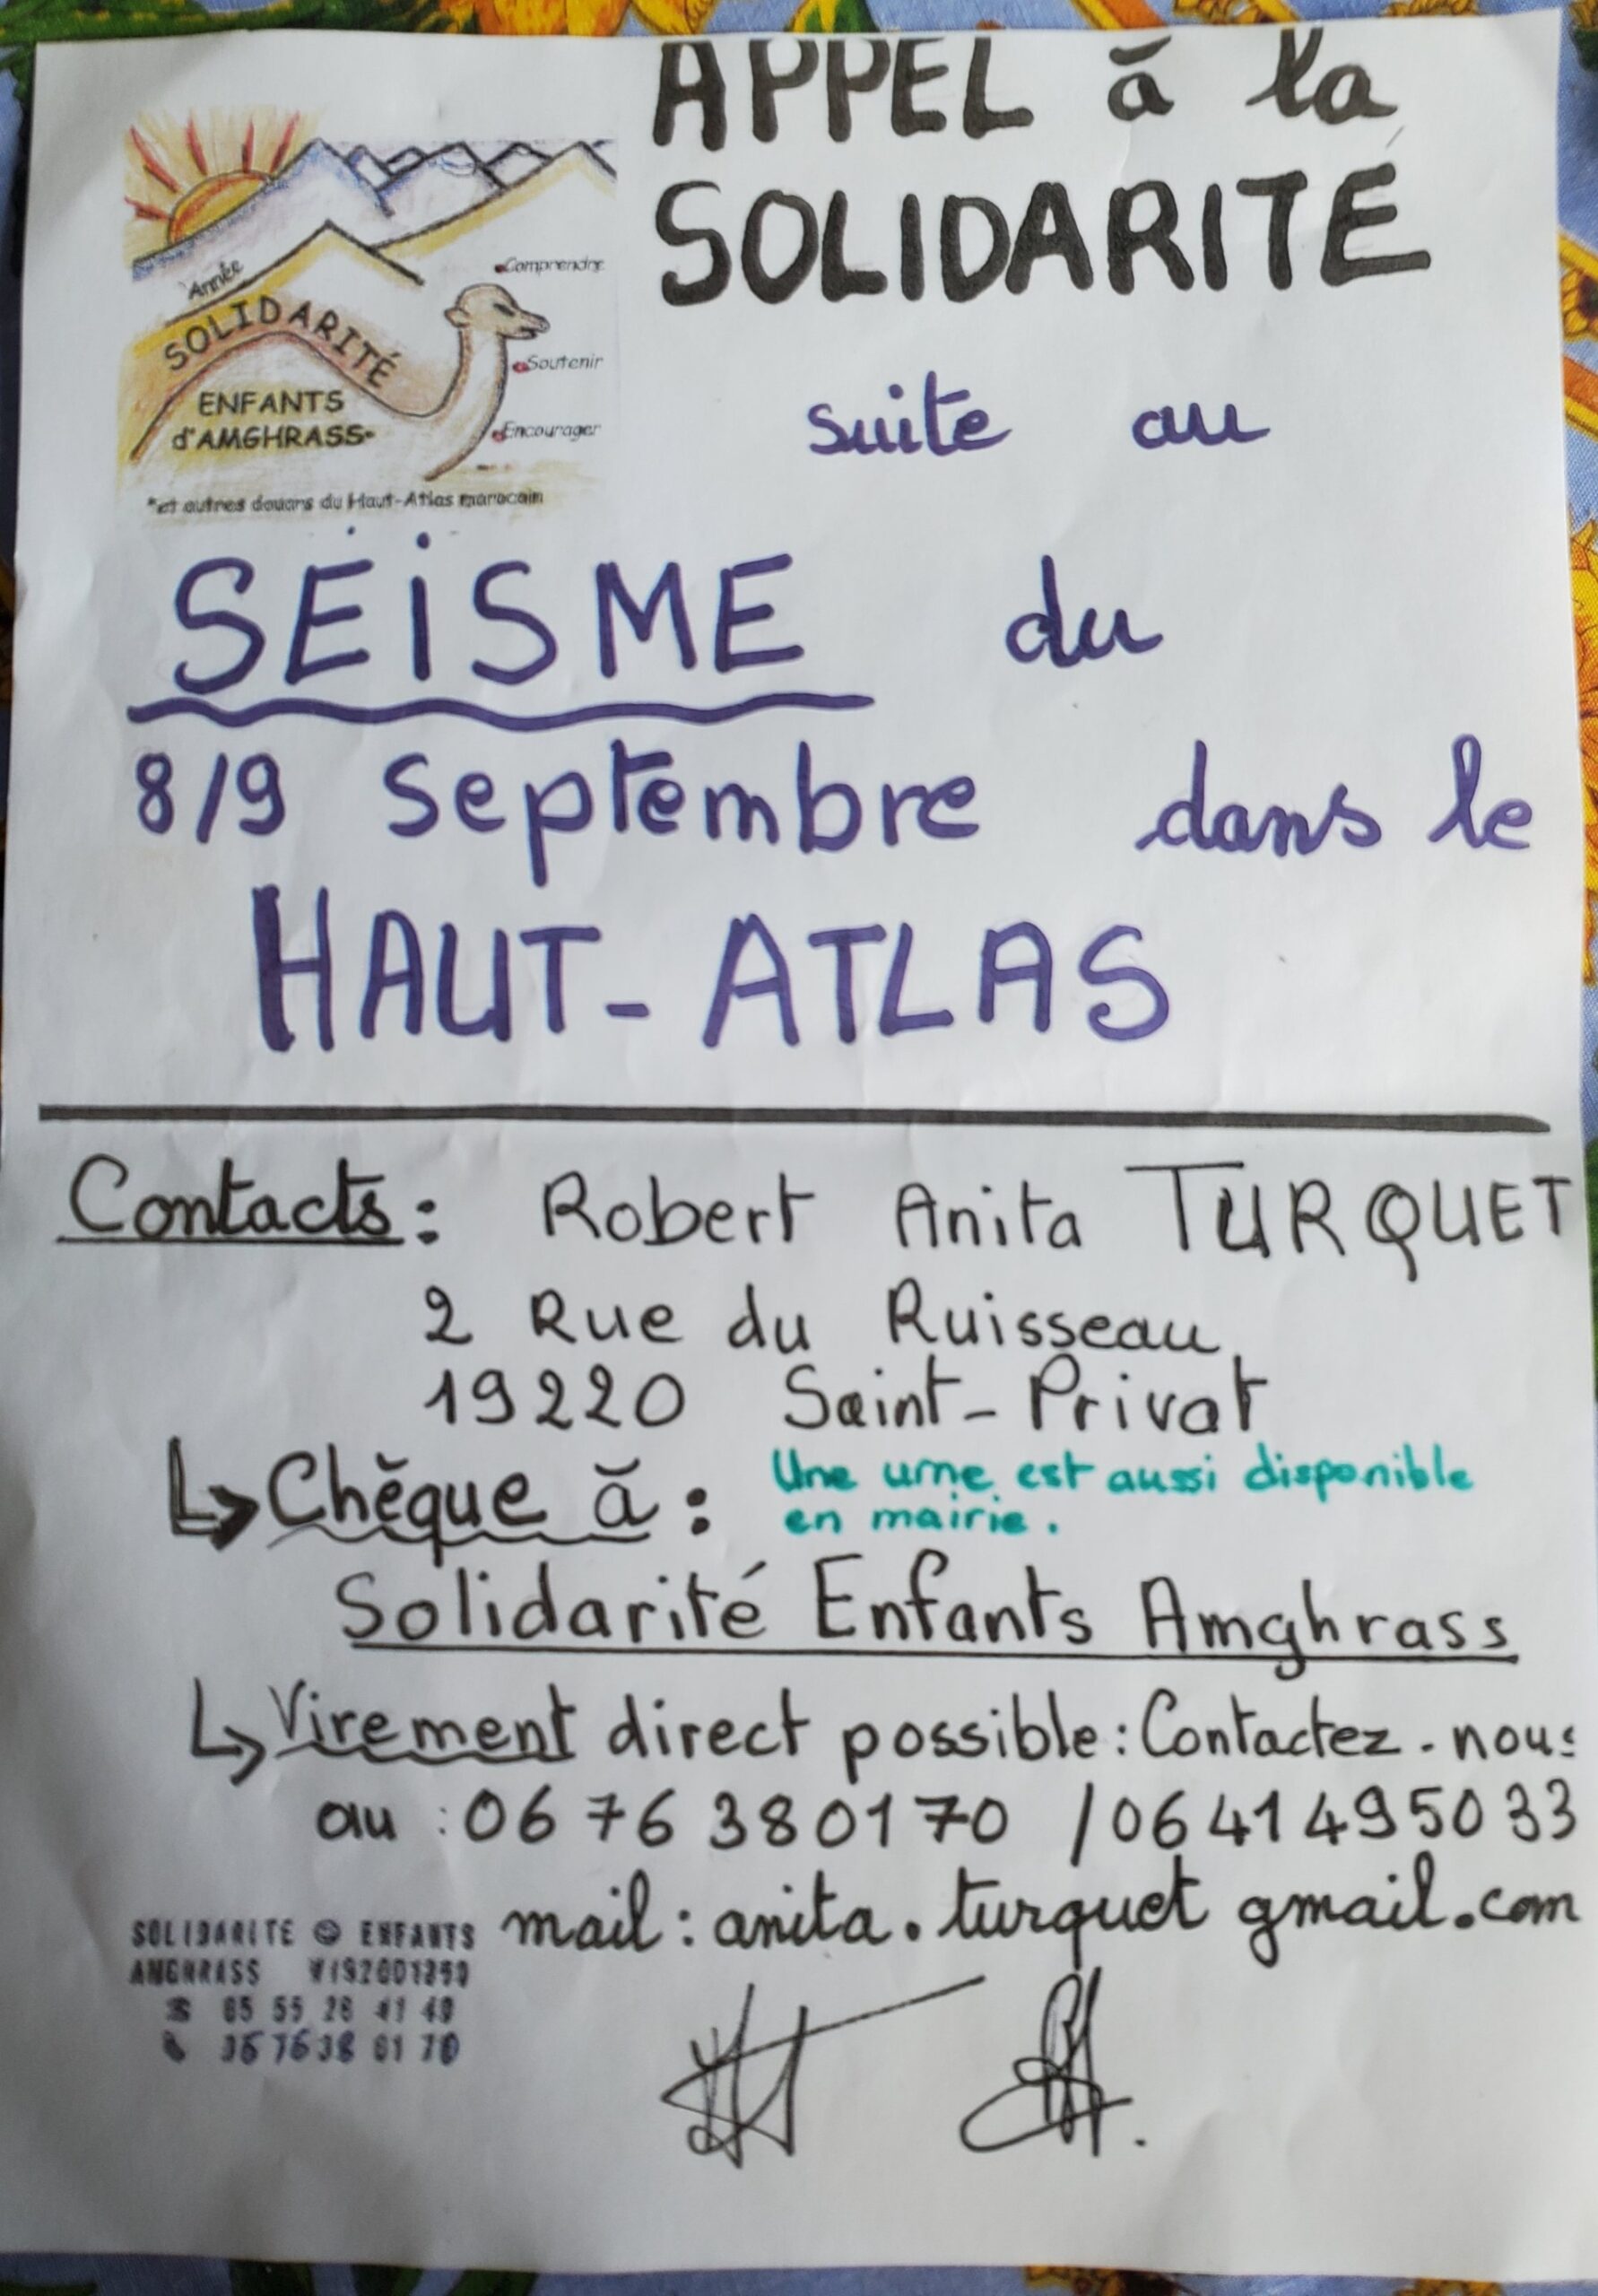 APPEL à la
SOLIDARITE
Année
SOLIDARITÉ
ENFANTS
d'AMGHRASS*
Comprendre
Soutenir
Encourager
*et autres douars du Haut-Atlas marocain
suite au
SEISME du
8/9 septembre dans le
HAUT-ATLAS
Contacts: Robert Anita TURQUET
2 Rue du Ruisseau
19220 Saint-Privat
Chèque à :
Une urne est aussi disponible
en mairie.
Solidarité Enfants Amghrass
Virement direct possible : Contactez-nous
au : 06 76 38 01 70 / 06 41 49 50 33
mail : anita.turquet gmail.com
SOLIDARITE ENFANTS
AMGHRASS
05 55 28 41 49
06 76 38 01 70